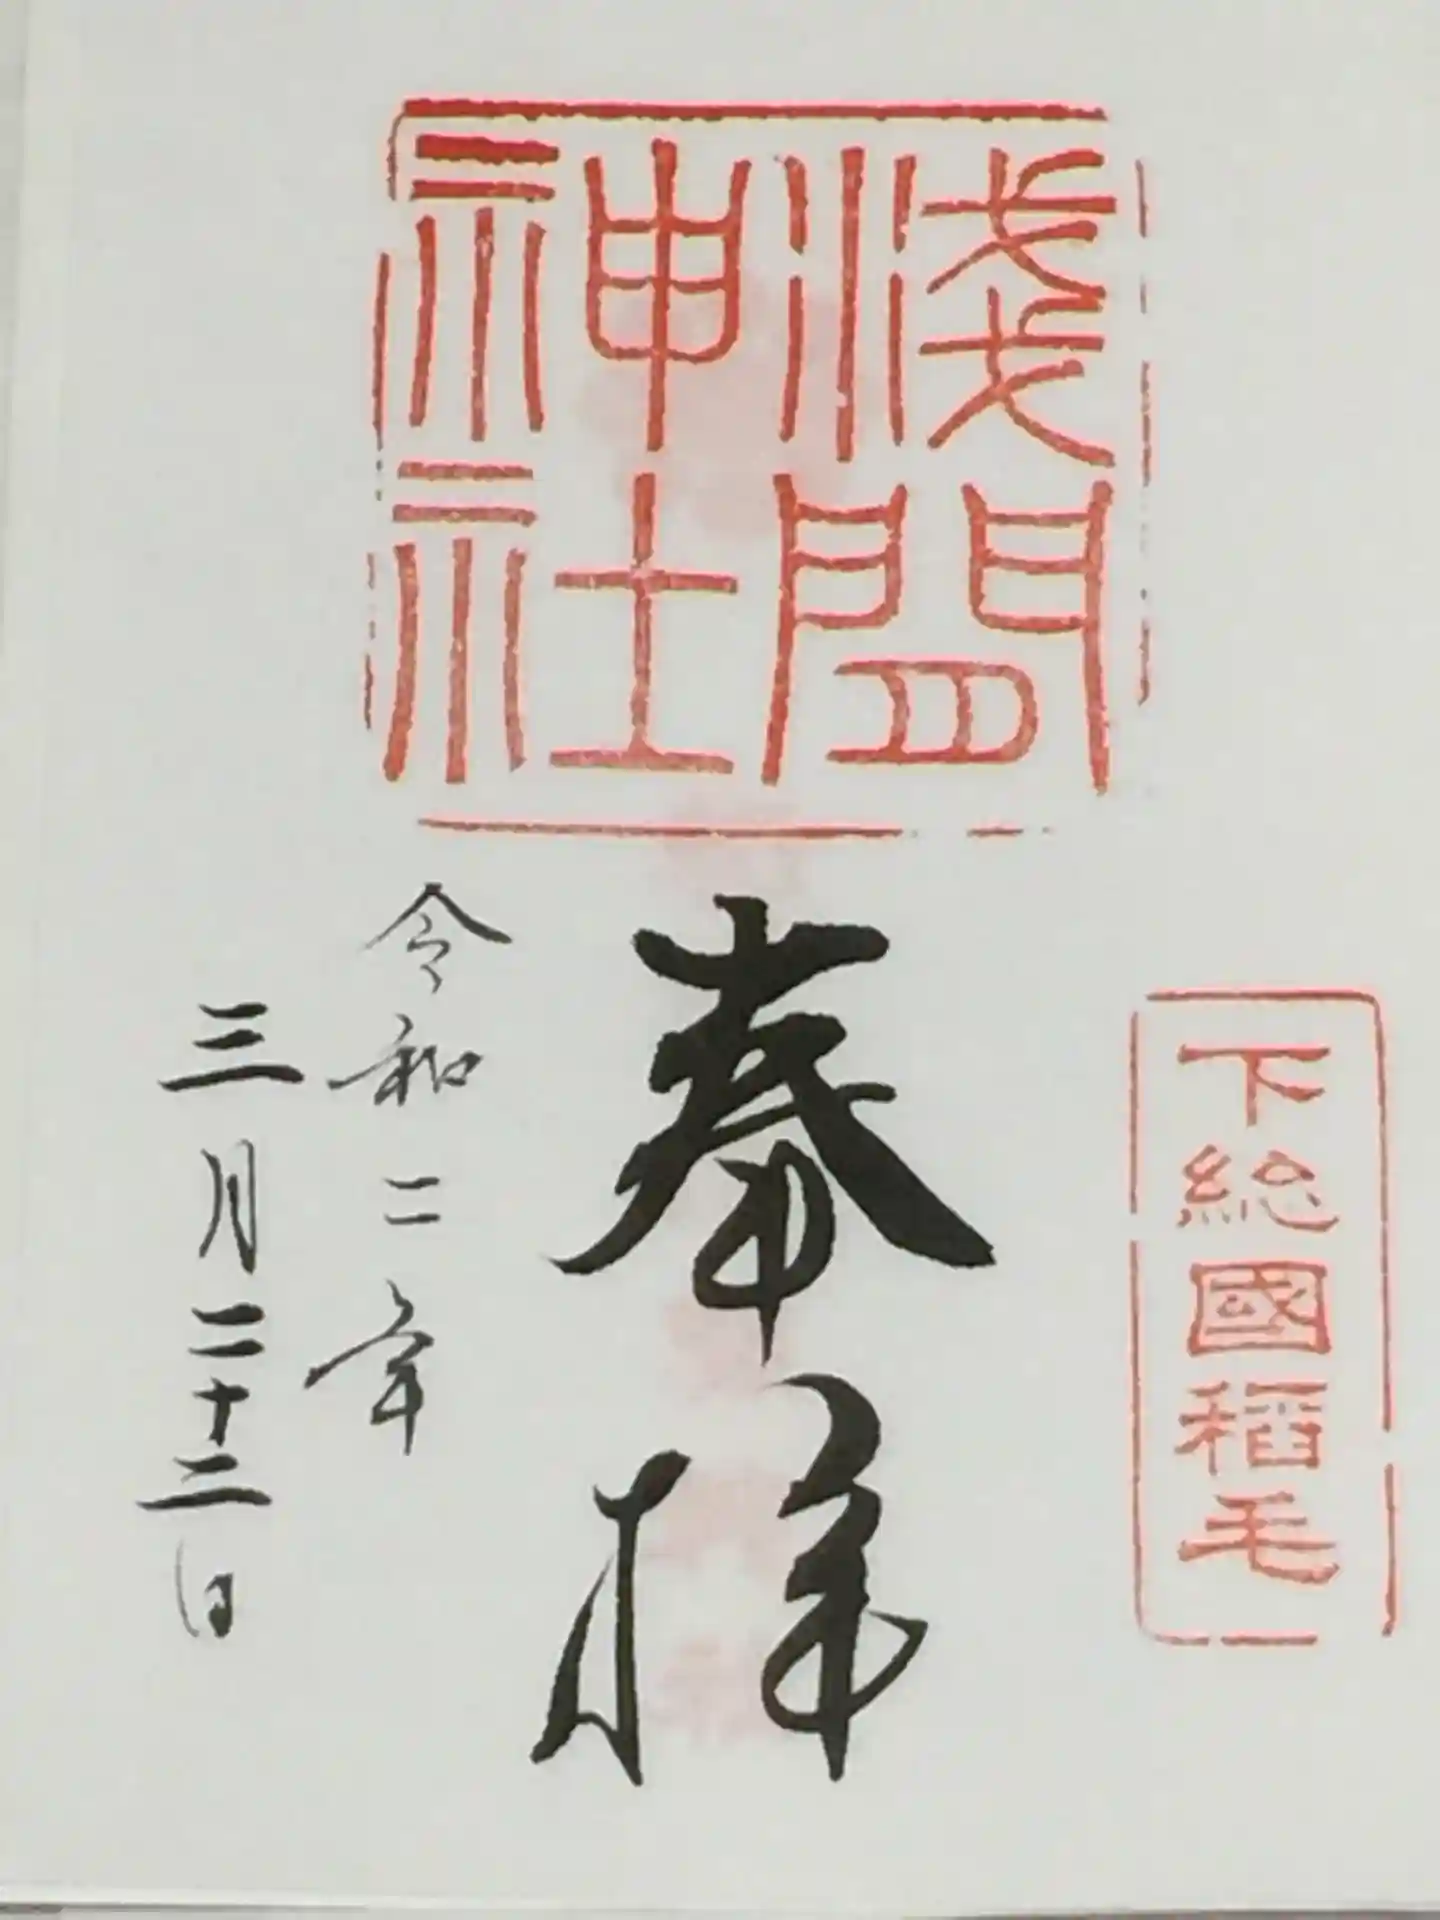 下総國稲毛
淺間
神社
奉拝
令和二年
三月二十二日